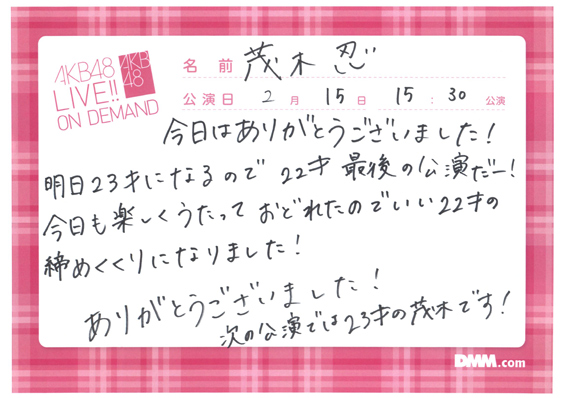 AKB48
LIVE!!
ON DEMAND
AKB
48
名前 茂木 忍
公演日 2月 15日 15:30 公演
今日はありがとうございました!
明日23才になるので 22才 最後の公演だー!
今日も楽しくうたって おどれたのでいい22才の
締めくくりになりました!
ありがとうございました!
次の公演では23才の茂木です!
DMM.com